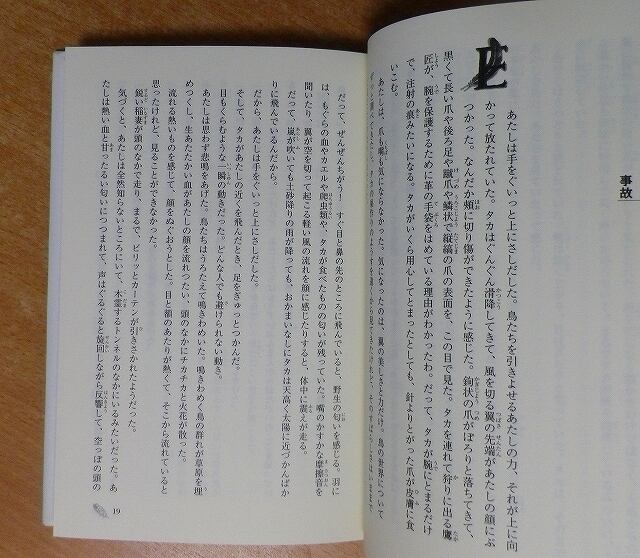 事故
あたしは手をぐいっと上にさしだした。鳥たちを引きよせるあたしの力、それが上に向
かって放たれていた。タカはぐんぐん滑降してきて、風を切る翼の先端があたしの顔にぶ
つかった。なんだか頬に切り傷ができたように感じた。鉤状の爪がぽろりと落ちてきて、
黒くて長い爪や後ろ足や蹴爪や鱗状で縦縞の爪の表面を、この目で見た。タカを連れて狩りに出る鷹
匠が、腕を保護するために革の手袋をはめている理由がわかったわ。だって、タカが腕にとまるだけ
で、注射の痕みたいになる。タカがいくら用心してとまったとしても、針よりとがった爪が皮膚に食
いこむ。
あたしは、爪も嘴も気にならなかった。気になったのは、翼の美しさとわざだけ。鳥の世界について
だって、ぜんぜんちがう！　すぐ目と鼻の先のところに飛んでいると、野生の匂いを感じる。羽に
は、もぐらの血やカエルや爬虫類や、タカが食べたものの匂いが残っていた。嘴のかすかな摩擦音を
聞いたり、翼が空を切って起こる軽い風の流れを顔に感じたりすると、体中に震えが走る。
だって、嵐が吹いても土砂降りの雨が降っても、おかまいなしにタカは天高く太陽に近づかんばか
りに飛んでいるんだから。
だから、あたしは手をぐいっと上にさしだした。
そして、タカがあたしの近くを飛んだとき、足をぎゅっとつかんだ。
目もくらむような一瞬の動きだった。どんな人でも避けられない動き。
あたしは思わず悲鳴をあげた。鳥たちはうろたえて鳴きわめいた。鳴きわめく鳥の群れが草原を埋
めつくし、生あたたかい血があたしの顔を流れつたい、頭のなかにチカチカと火花が散った。
流れる熱いものを感じて、顔をぬぐおうとした。目と額のあたりが熱くて、そこから流れていると
思ったけれど、見ることができなかった。
鋭い稲妻が頭のなかで走り、まるで、ビリッとカーテンが引きさかれたようだった。
気づくと、あたしは全然知らないところにいて、木霊するトンネルのなかにいるみたいだった。あ
たしは熱い血と甘ったるい匂いにつつまれて、声はぐるぐると旋回しながら反響して、空っぽの頭の
19